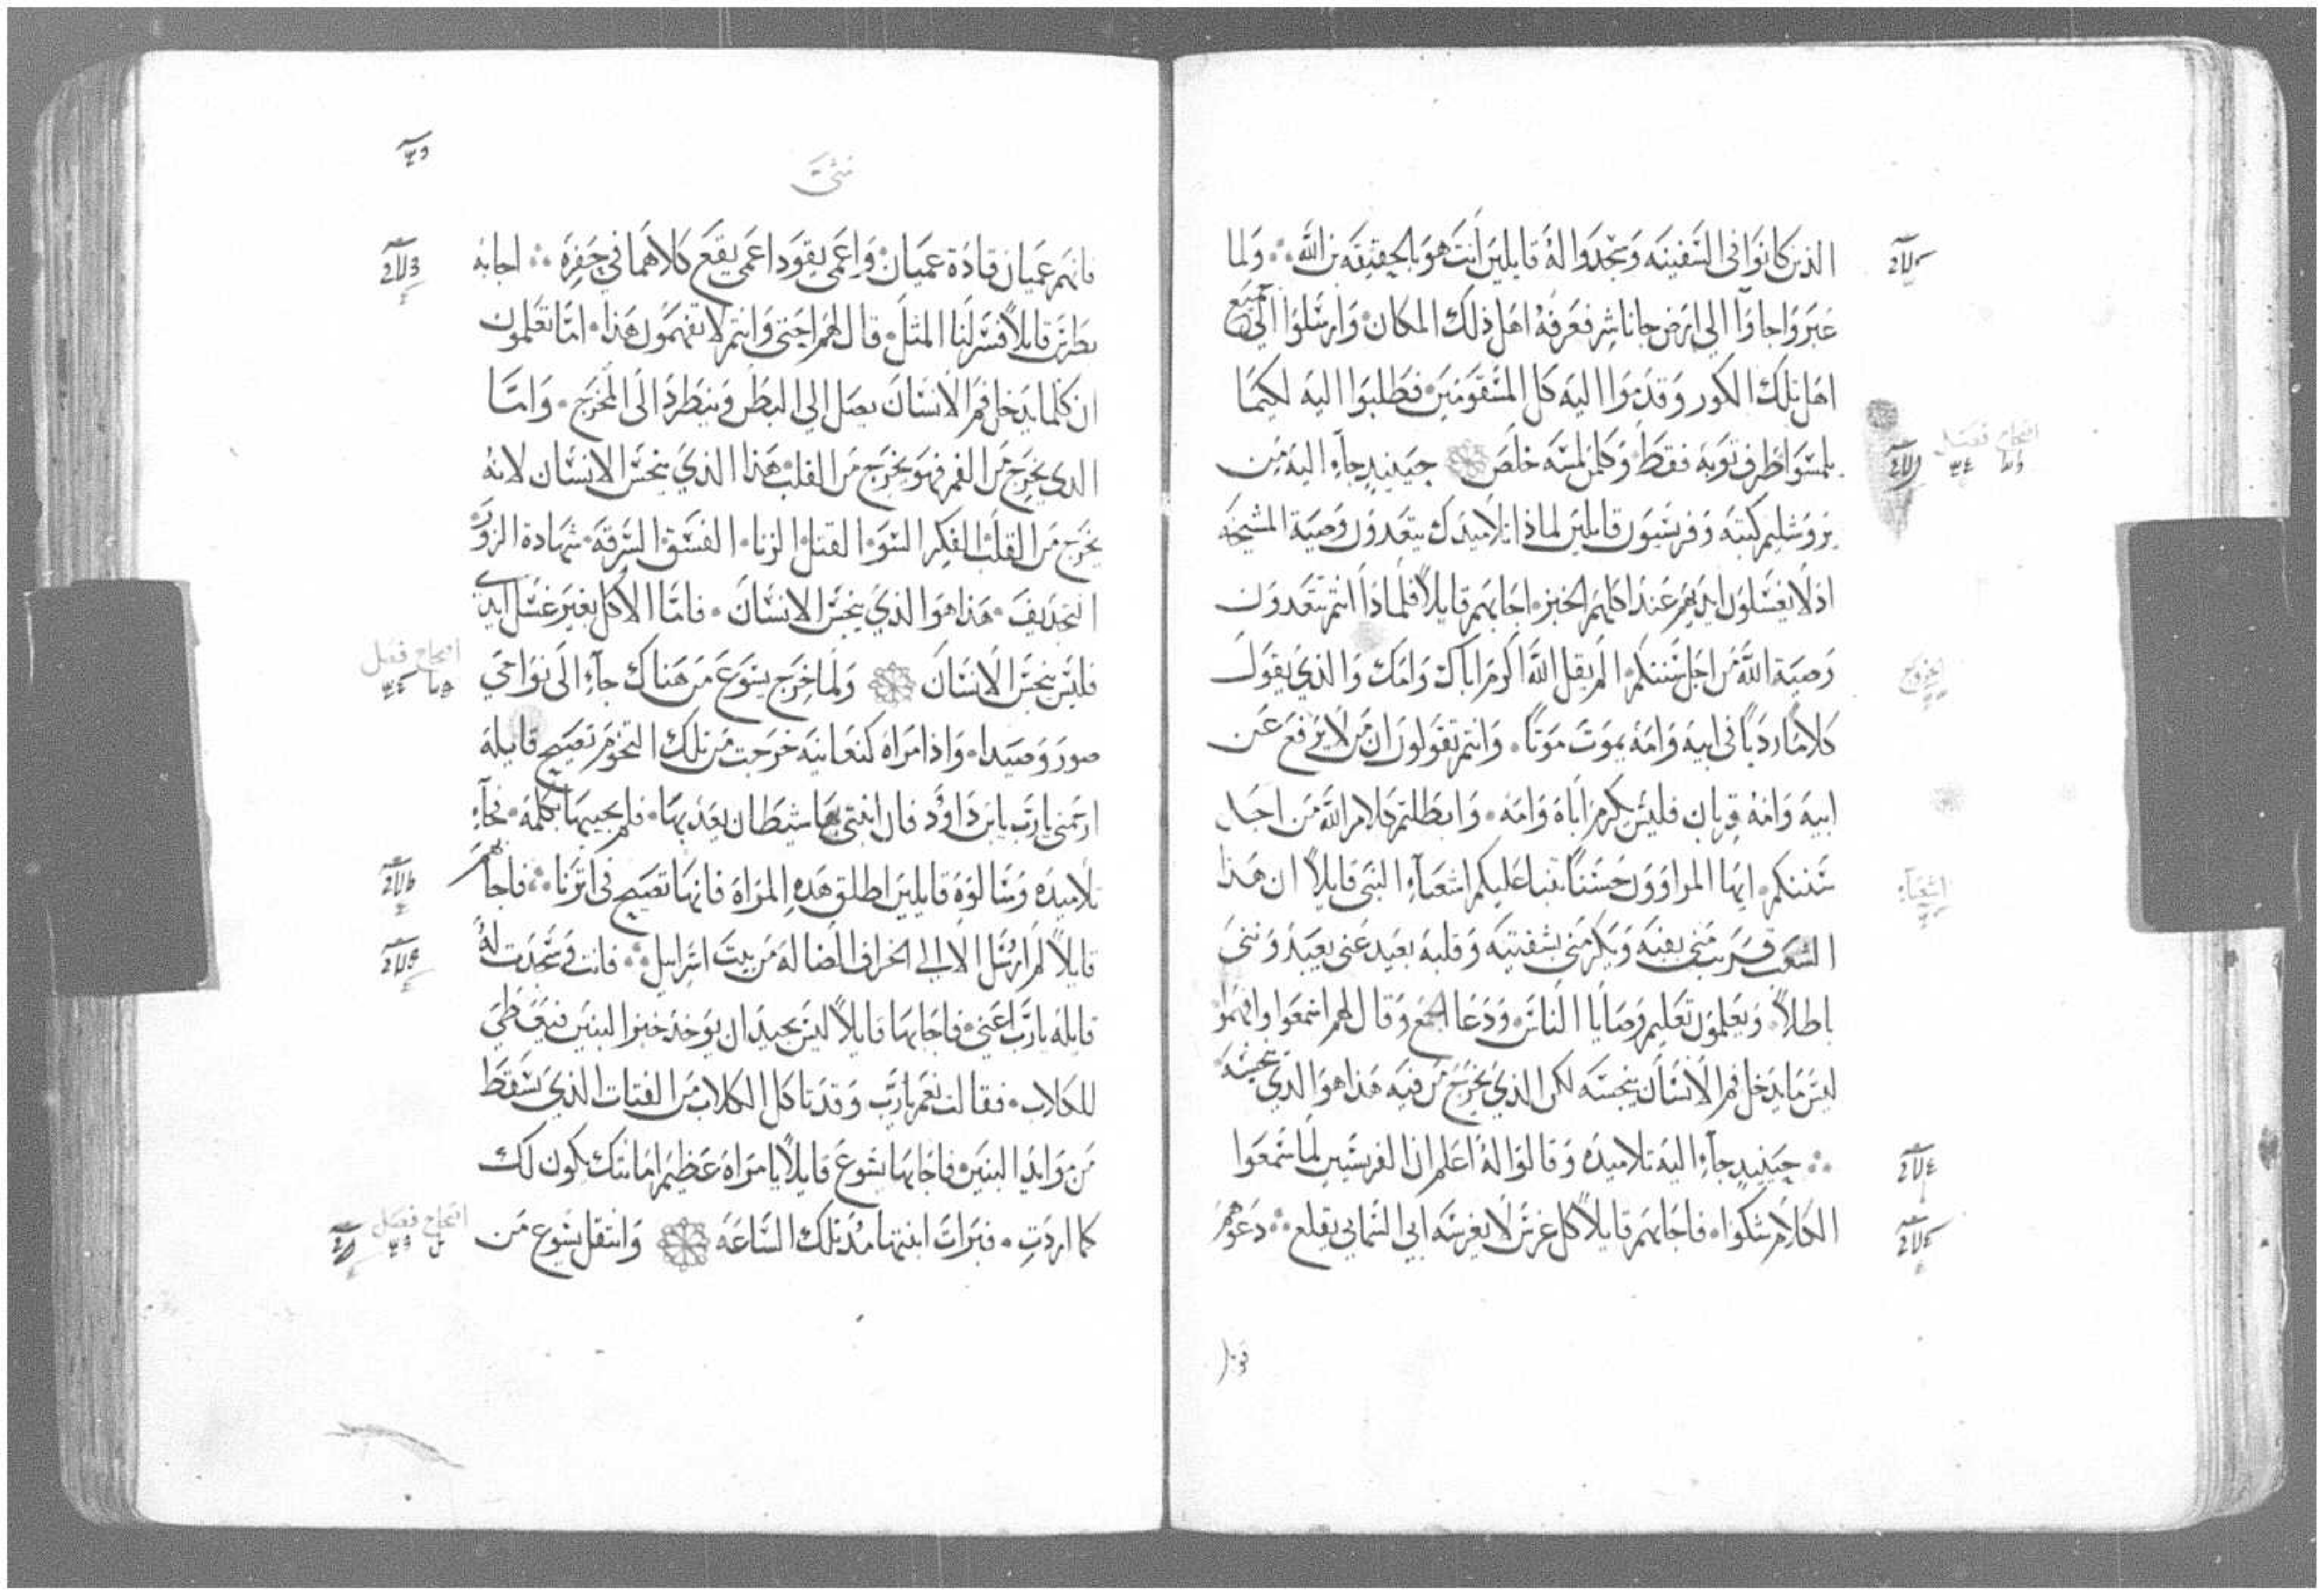 الذين كانوا في السفينه وسجدوا له قايلين انت هو بالحقيقه بن الله ولما
عبروا جاوا الى ارض جاناشر فعرفه اهل ذلك المكان وارسلوا الى جميع
اهل تلك الكور وقدموا اليه كل المسقومين فطلبوا اليه لكيما
يلمسوا طرف ثوبه فقط وكلمن لمسه خلص حينيدٍ جاء اليه من
يروشليم كتبه وفريسيون قايلين لماذا تلاميدك يتعدون وصية المشيخه
اذ لا يغسلون ايديهم عند اكلهم الخبز اجابهم قايلاً فلماذا انتم تتعدون
وصية الله من اجل سننكم الم يقل الله اكرم اباك وامك والذي يقول
كلاماً ردياً في ابيه وامه يموت موتاً وانتم تقولون ان من لا يرفع عن
ابيه وامه قربان فليس يكرم اباه وامه وابطلتم كلام الله من اجل
سننكم ايها المراوون حسناً تنبا عليكم اشعياء النبي قايلاً ان هذا
الشعب قريب مني بفيه ويكرمني بشفتيه وقلبه بعيد عني يعبدونني
باطلاً ويعلمون تعليم وصايا الناس ودعا الجمع وقال لهم اسمعوا وافهموا
ليس ما يدخل فم الانسان ينجسه لكن الذي يخرج من فيه هذا هو الذي ينجسه
حينيدٍ جاء اليه تلاميده وقالوا له اعلم ان الفريسيين لما سمعوا
الكلام شكوا فاجابهم قايلاً كل غرس لا يغرسه ابي السمايي يقلع دعوهم
الخروج
اشعياء
متى
فانهم عميان قادة عميان واعمى يقود اعمى يقع كلاهما في حفره اجابه
بطرس قايلاً فسر لنا المثل قال لهم احتى وانتم لا تفهمون هذا اما تعلمون
ان كلما يدخل فم الانسان يصل الى البطن وينطرد الى المخرج واما
الدي يخرج من الفم فهو يخرج من القلب هذا الذي ينجس الانسان لانه
يخرج من القلب الفكر السو القتل الزنا الفسق السرقه شهادة الزور
التجديف هذا هو الذي ينجس الانسان فاما الاكل بغير غسل ايدي
فليس ينجس الانسان ولما خرج يسوع من هناك جاء الى نواحي
صور وصيدا واذا مراه كنعانيه خرجت من تلك التخوم تصيح قايله
ارحمني يارب يابن داوُد فان ابنتي بها شيطان يعذبها فلم يجيبها بكلمه فجاء
تلاميده وسالوه قايلين اطلق هده المراة فانها تصيح في اثرنا فاجابهم
قايلاً لم ارسل الا الى الخراف الضاله من بيت اسراييل فاتت وسجدت له
قايله يارب اعني فاجابها قايلاً ليس بجيد ان يوخد خبز البنين فيعطي
للكلاب فقالت نعم يارب وقد تاكل الكلاب من الفتات الذي يسقط
من موايد البنين فاجابها يسوع قايلاً يا مراه عظيم امانتك يكون لك
كما اردتِ فبرات ابنتها مند تلك الساعه وانتقل يسوع من
افتتاح فصل